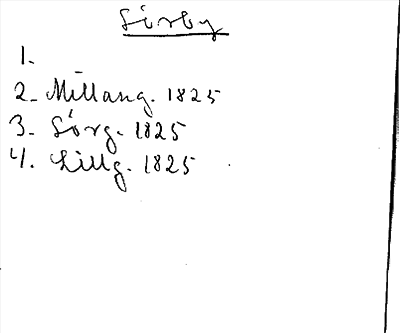 Sörby
1.
2. Mellang. 1825
3. Sörg. 1825
4. Lillg. 1825